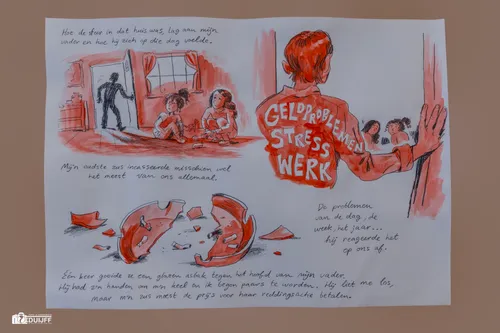 Hoe de sfeer in dat huis was, lag aan mijn
vader en hoe hij zich op die dag voelde.
GELDPROBLEMEN
STRESS
WERK
Mijn oudste zus incasseerde misschien wel
het meest van ons allemaal.
De problemen
van de dag, de
week, het jaar...
hij reageerde het
op ons af.
Één keer gooide ze een glazen asbak tegen het hoofd van mijn vader.
Hij had zijn handen om mn keel en ik begon paars te worden. Hij liet me los,
maar mn zus moest de prijs voor haar reddingsactie betalen.
DUIJFF